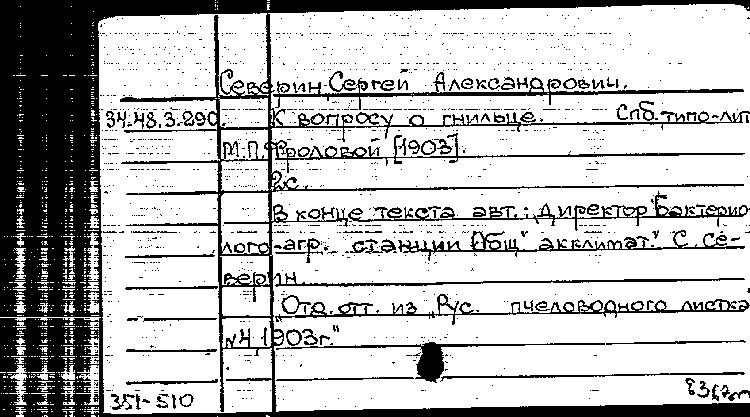 Северин, Сергей Александрович.
34.48.3.290. К вопросу о гнильце. Спб, типо-лит
М.П. Фроловой, [1903].
2с.
В конце текста авт.: Директор Бактерио
лого-агр. станции "Общ" акклимат." С. Се-
верин.
"Отд. отт. из "Рус. пчеловодного листка
N4, 1903г."
351-510